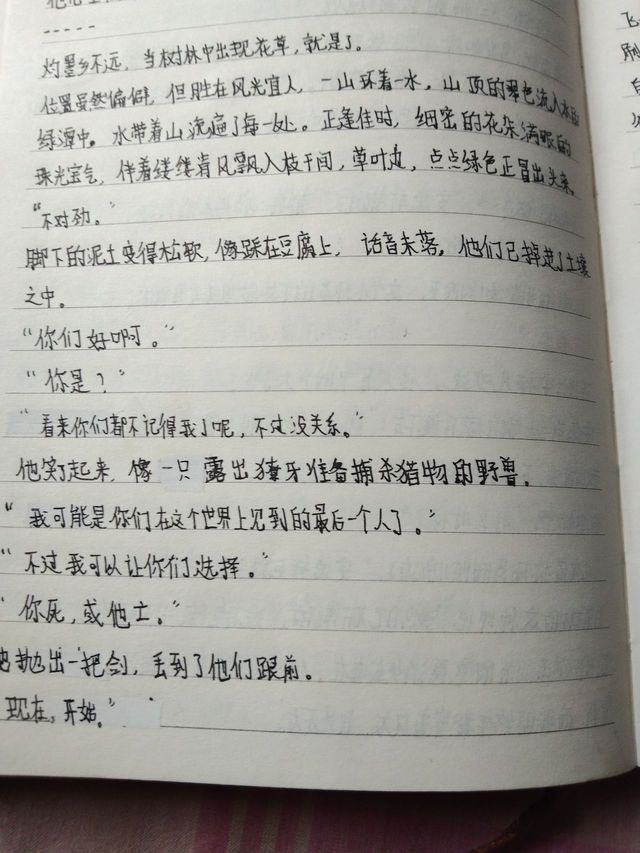 -----
灼墨乡不远，当树林中出现花草，就是了。
位置虽然偏僻，但胜在风光宜人，一山环着一水，山顶的翠色流入水
绿源中。水带着山流遍了每一处。正逢佳时，细密的花朵满眼的
珠光宝气，伴着缕缕青风飘入枝干间，草叶边，点点绿色正冒出头来。
“不对劲。”
脚下的泥土变得松软，像踩在豆腐上，话音未落，他们已掉进了土壤
之中。
“你们好啊。”
“你是？”
“看来你们都不记得我了呢，不过没关系。”
他笑了起来，像一只露出獠牙准备捕杀猎物的野兽。
“我可能是你们在这个世界上见到的最后一个人了。”
“不过我可以让你们选择。”
“你死，或他亡。”
他抛出一把剑，丢到了他们跟前。
现在，开始。”
飞